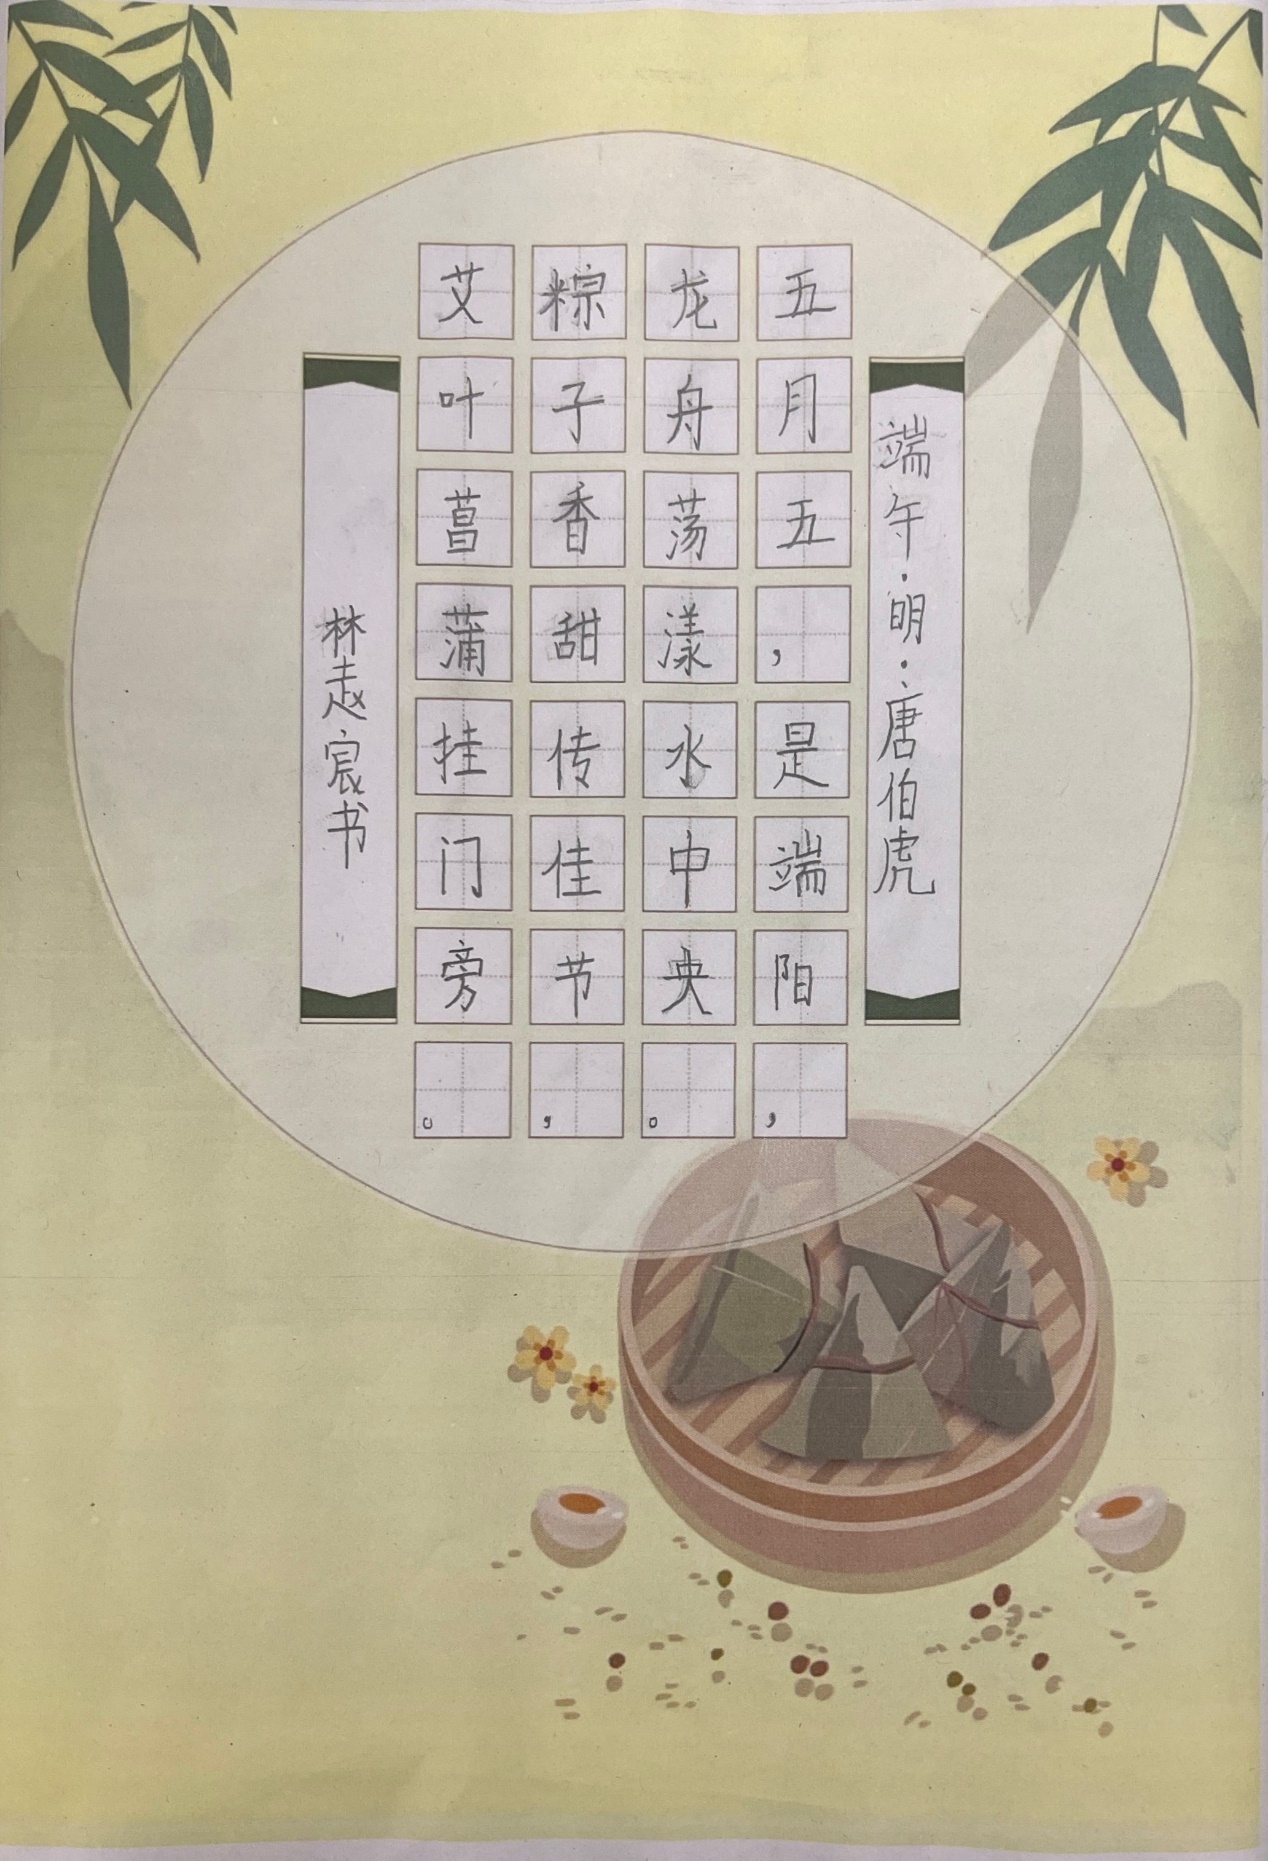 端午·明·唐伯虎
五月五，是端阳，
龙舟荡漾水中央。
粽子香甜传佳节，
艾叶菖蒲挂门旁。
林志宸书